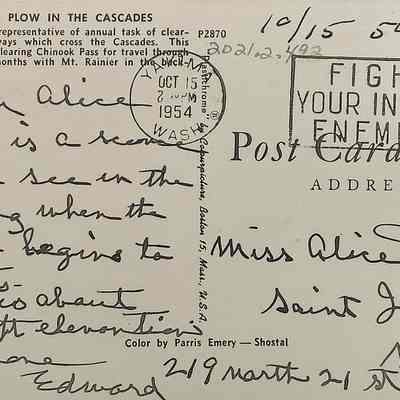 PLOW IN THE CASCADES
representative of annual task of clear-
ways which cross the Cascades. This
learing Chinook Pass for travel through
months with Mt. Rainier in the back-
P2870
10/15 54
2021.2.492
YAKIMA
OCT 15
2 PM
1954
WASH
FIGH
YOUR IN
ENEM
Alice
is a scene
see in the
when the
begins to
about
ft elevantion
Edward
"Plastichrome" ® by Colourpicture, Boston 15, Mass., U.S.A.
Post Card
ADDRE
Miss Alice
Saint J
219 north 21 st
Color by Parris Emery — Shostal